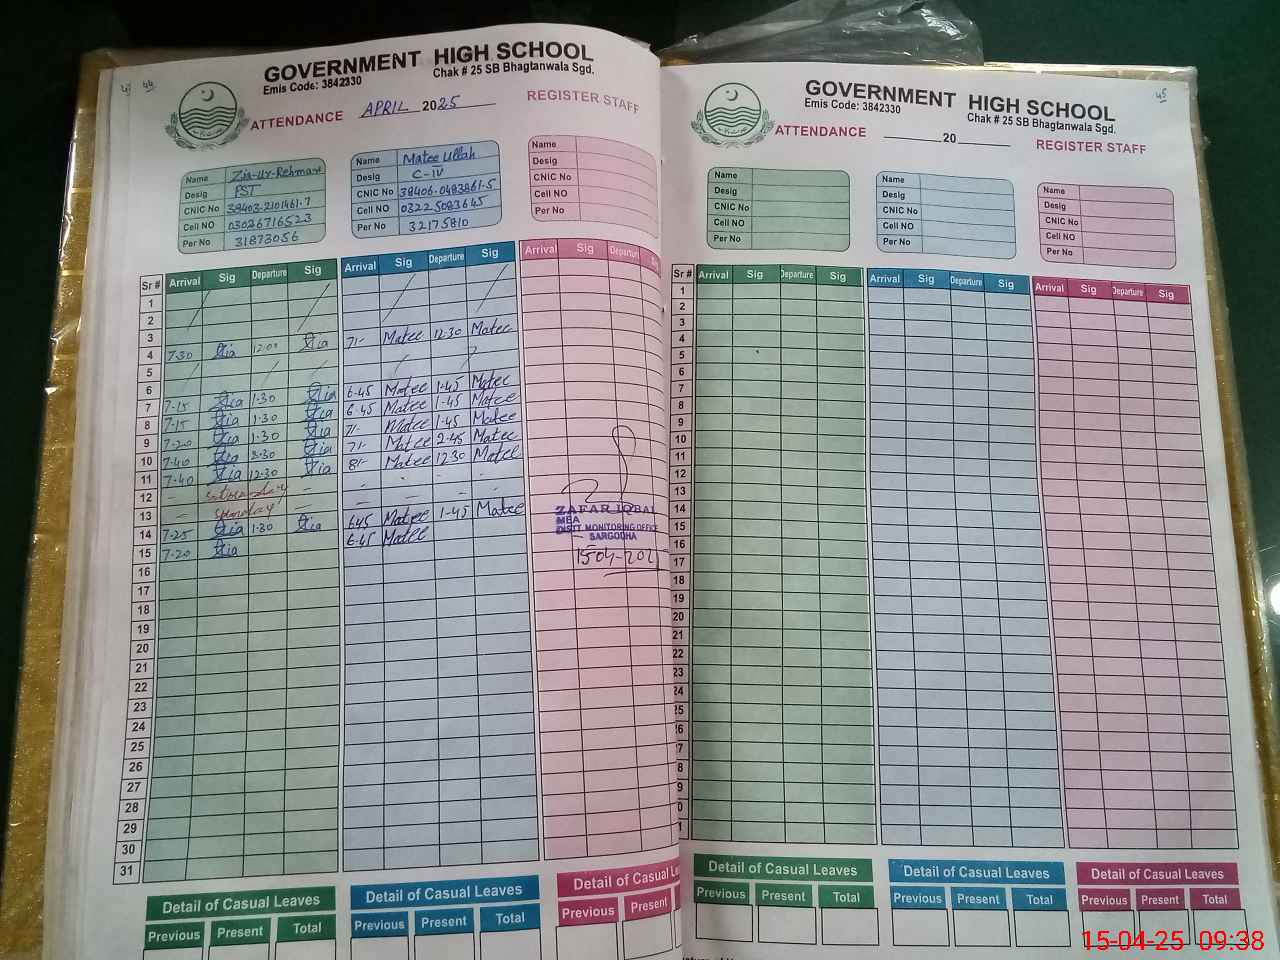 44
GOVERNMENT HIGH SCHOOL
Emis Code: 3842330
Chak # 25 SB Bhagtanwala Sgd.
ATTENDANCE APRIL 2025 REGISTER STAFF
Name Zia-ur-Rehman
Desig PST
CNIC No 38403-2101461-7
Cell NO 03026716523
Per No 31873056
Name Matee Ullah
Desig C-IV
CNIC No 38406-0483861-5
Cell NO 03225083645
Per No 32175810
Name
Desig
CNIC No
Cell NO
Per No
Sr # Arrival Sig Departure Sig Arrival Sig Departure Sig Arrival Sig Departure
1
2
3
4 7-30 Zia 12-00 Zia 7/- Matee 12-30 Matee
5
6
7 7-15 Zia 1-30 Zia 6-45 Matee 1-45 Matee
8 7-15 Zia 1-30 Zia 6-45 Matee 1-45 Matee
9 7-20 Zia 1-30 Zia 7/- Matee 1-45 Matee
10 7-40 Zia 2-30 Zia 7/- Matee 2-45 Matee
11 7-40 Zia 12-30 Zia 8/- Matee 12-30 Matee
12
13 Sunday
14 7-25 Zia 1-30 Zia 6-45 Matee 1-45 Matee
15 7-20 Zia 6-45 Matee
16
17
18
19
20
21
22
23
24
25
26
27
28
29
30
31
ZAFAR IQBAL
MEA
DISTT. MONITORING OFFICE
SARGODHA
Detail of Casual Leaves
Previous Present Total
Detail of Casual Leaves
Previous Present Total
Detail of Casual Leaves
Previous Present
45
GOVERNMENT HIGH SCHOOL
Emis Code: 3842330
Chak # 25 SB Bhagtanwala Sgd.
ATTENDANCE 20 REGISTER STAFF
Name
Desig
CNIC No
Cell NO
Per No
Name
Desig
CNIC No
Cell NO
Per No
Name
Desig
CNIC No
Cell NO
Per No
Sr # Arrival Sig Departure Sig Arrival Sig Departure Sig Arrival Sig Departure Sig
1
2
3
4
5
6
7
8
9
10
11
12
13
14
15
16
17
18
19
20
21
22
23
24
25
Detail of Casual Leaves
Previous Present Total
Detail of Casual Leaves
Previous Present Total
Detail of Casual Leaves
Previous Present Total
15-04-25 09:38